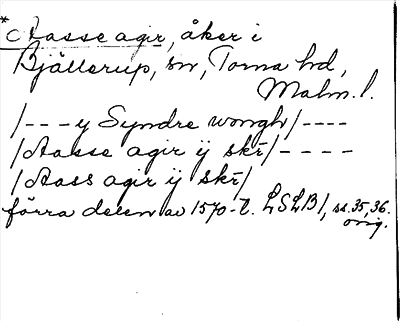 *Aasse agir, åker i
Bjällerup, sn, Torna hd,
Malm. l.
/---y Syndre wongh/----
/Aasse agir ij skr̄/----
/Aass agir ij skr̄/
förra delen av 1570-t. LSLB1, ss. 35, 36.
orig.